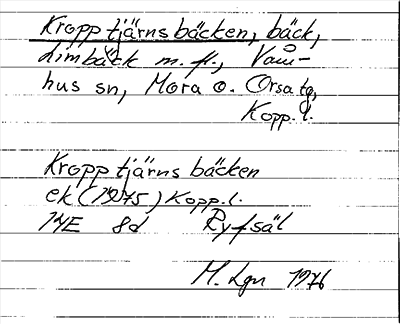 Kropptjärnsbäcken, bäck,
Limbäck m. fl., Våm-
hus sn, Mora o. Orsa tg,
Kopp. l.
Kropptjärnsbäcken
ek (1975) Kopp. l.
14E 8d Ryfsäl
M. Lgn 1976